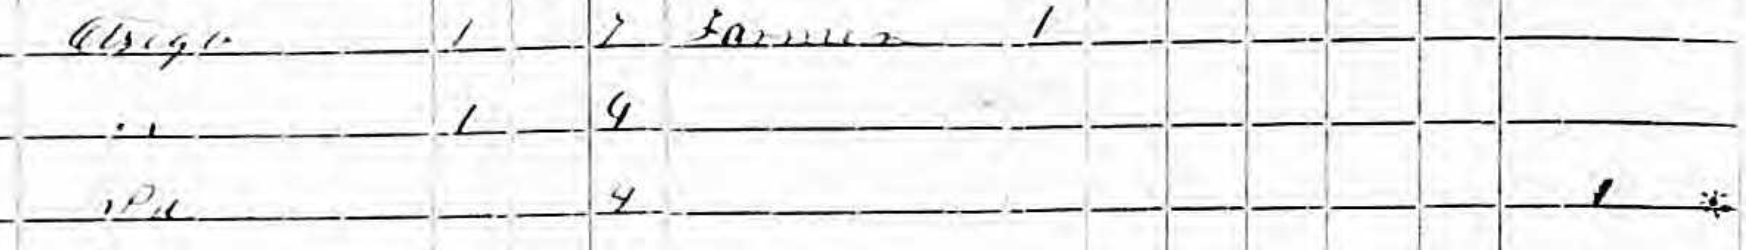 Otsego 1 7 Farmer 1
" 1 9
Pa 4 1 *